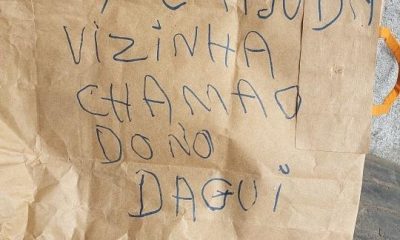 AJUDA
VIZINHA
CHAMAO
DONO
DAGUI